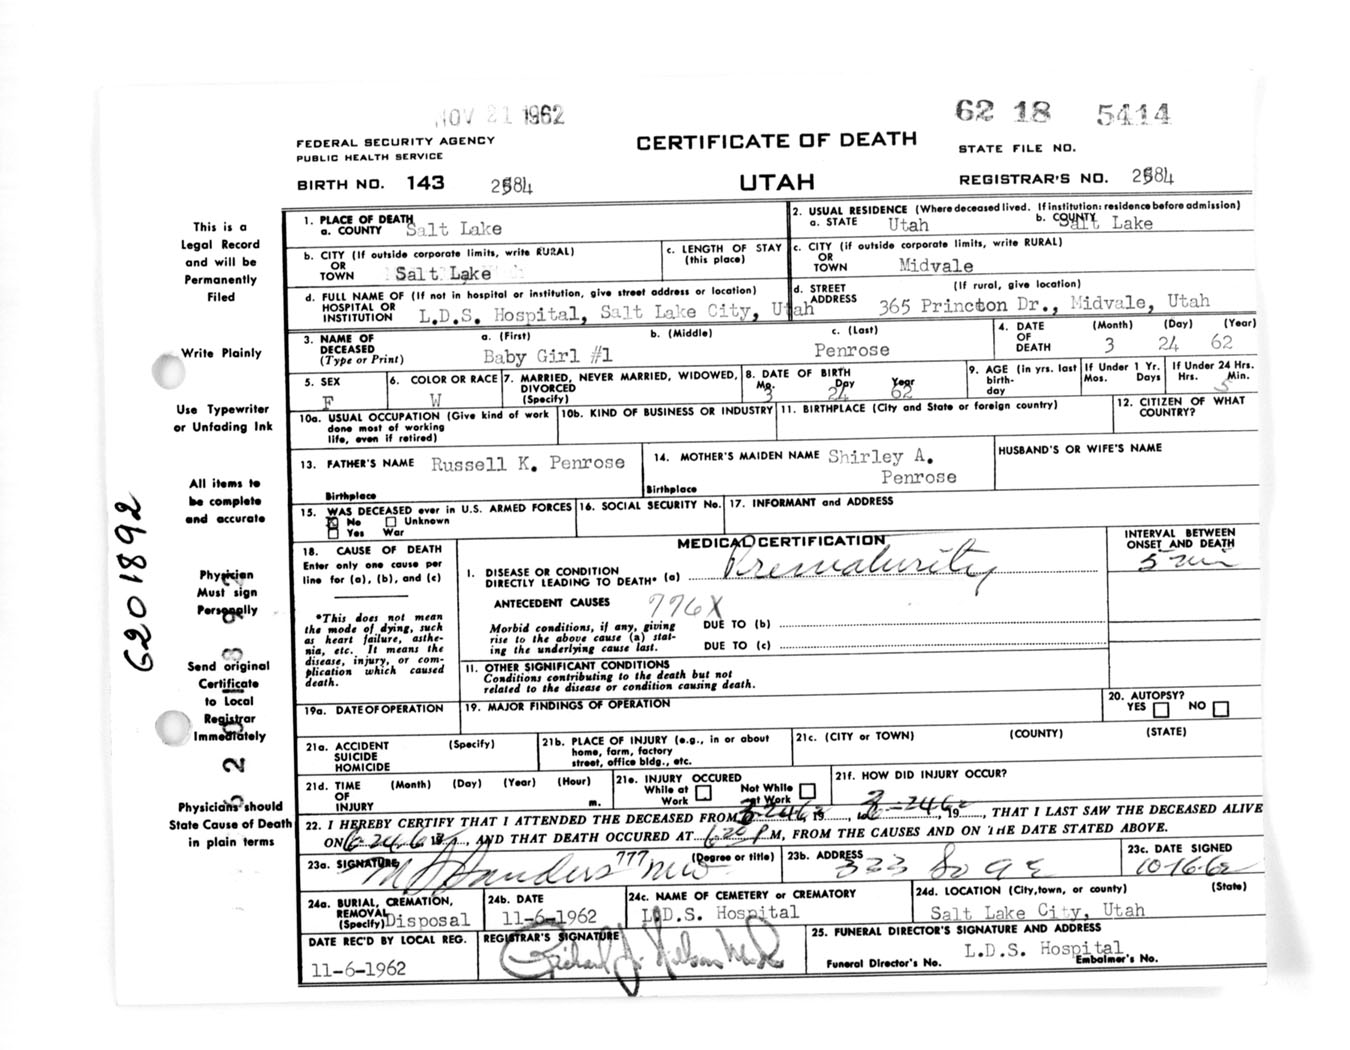 NOV 21 1962
62 18 5414
FEDERAL SECURITY AGENCY
PUBLIC HEALTH SERVICE
CERTIFICATE OF DEATH
STATE FILE NO.
BIRTH NO. 143 2584
UTAH
REGISTRAR'S NO. 2584
This is a
Legal Record
and will be
Permanently
Filed
Write Plainly
Use Typewriter
or Unfading Ink
All items to
be complete
and accurate
Physician
Must sign
Personally
Send original
Certificate
to Local
Registrar
Immediately
Physicians should
State Cause of Death
in plain terms
6201892
1. PLACE OF DEATH
a. COUNTY Salt Lake
2. USUAL RESIDENCE (Where deceased lived. If institution: residence before admission)
a. STATE Utah b. COUNTY Salt Lake
b. CITY (If outside corporate limits, write RURAL)
OR
TOWN Salt Lake
c. LENGTH OF STAY
(this place)
c. CITY (if outside corporate limits, write RURAL)
OR
TOWN Midvale
d. FULL NAME OF (If not in hospital or institution, give street address or location)
HOSPITAL OR
INSTITUTION L.D.S. Hospital, Salt Lake City, Utah
d. STREET (If rural, give location)
ADDRESS 365 Princton Dr., Midvale, Utah
3. NAME OF DECEASED
(Type or Print)
a. (First) b. (Middle) c. (Last)
Baby Girl #1 Penrose
4. DATE OF DEATH (Month) (Day) (Year)
3 24 62
5. SEX
F
6. COLOR OR RACE
W
7. MARRIED, NEVER MARRIED, WIDOWED,
DIVORCED
(Specify)
8. DATE OF BIRTH
Mo. Day Year
3 24 62
9. AGE (in yrs. last
birth-
day
If Under 1 Yr.
Mos. Days
If Under 24 Hrs.
Hrs. Min.
5
10a. USUAL OCCUPATION (Give kind of work
done most of working
life, even if retired)
10b. KIND OF BUSINESS OR INDUSTRY
11. BIRTHPLACE (City and State or foreign country)
12. CITIZEN OF WHAT
COUNTRY?
13. FATHER'S NAME Russell K. Penrose
Birthplace
14. MOTHER'S MAIDEN NAME Shirley A.
Penrose
Birthplace
HUSBAND'S OR WIFE'S NAME
15. WAS DECEASED ever in U.S. ARMED FORCES
No Unknown
Yes War
16. SOCIAL SECURITY No.
17. INFORMANT and ADDRESS
18. CAUSE OF DEATH
Enter only one cause per
line for (a), (b), and (c)
*This does not mean
the mode of dying, such
as heart failure, asthe-
nia, etc. It means the
disease, injury, or com-
plication which caused
death.
MEDICAL CERTIFICATION
INTERVAL BETWEEN
ONSET AND DEATH
I. DISEASE OR CONDITION
DIRECTLY LEADING TO DEATH* (a) Prematurity
5 min
ANTECEDENT CAUSES 776X
Morbid conditions, if any, giving
rise to the above cause (a) stat-
ing the underlying cause last.
DUE TO (b)
DUE TO (c)
11. OTHER SIGNIFICANT CONDITIONS
Conditions contributing to the death but not
related to the disease or condition causing death.
19a. DATE OF OPERATION
19. MAJOR FINDINGS OF OPERATION
20. AUTOPSY?
YES NO
21a. ACCIDENT (Specify)
SUICIDE
HOMICIDE
21b. PLACE OF INJURY (e.g., in or about
home, farm, factory
street, office bldg., etc.
21c. (CITY or TOWN) (COUNTY) (STATE)
21d. TIME (Month) (Day) (Year) (Hour)
OF
INJURY m.
21e. INJURY OCCURED
While at Work Not While at Work
21f. HOW DID INJURY OCCUR?
22. I HEREBY CERTIFY THAT I ATTENDED THE DECEASED FROM 3-24-62 19, to 3-24-62, 19, THAT I LAST SAW THE DECEASED ALIVE
ON 19, AND THAT DEATH OCCURED AT 6:20 P M, FROM THE CAUSES AND ON THE DATE STATED ABOVE.
23a. SIGNATURE Sanders 777 (Degree or title)
23b. ADDRESS 333 So 9 E
23c. DATE SIGNED
10-16-62
24a. BURIAL, CREMATION,
REMOVAL
(Specify) Disposal
24b. DATE
11-6-1962
24c. NAME OF CEMETERY or CREMATORY
L.D.S. Hospital
24d. LOCATION (City, town, or county) (State)
Salt Lake City, Utah
DATE REC'D BY LOCAL REG.
11-6-1962
REGISTRAR'S SIGNATURE
25. FUNERAL DIRECTOR'S SIGNATURE AND ADDRESS
L.D.S. Hospital
Funeral Director's No. Embalmer's No.